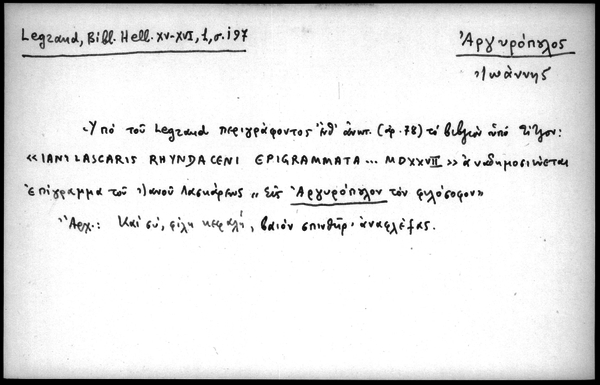 Legrand, Bibl. Hell. XV-XVI, 1, σ. 197
Ἀργυρόπουλος
Ἰωάννης
Ὑπό τοῦ Legrand περιγράφοντος ἐνθ' ἀνωτ. (ἀρ. 78) τό βιβλίον ὑπό τίτλον:
« IANI LASCARIS RHYNDACENI EPIGRAMMATA ... MDXXVII » ἀναδημοσιεύεται
ἐπίγραμμα τοῦ Ἰανοῦ Λασκάρεως „ εἰς Ἀργυρόπουλον τόν φιλόσοφον"
Ἀρχ.: Καί σύ, φίλη κεφαλή, βαιόν σπινθῆρ' ἀναφλέξας.